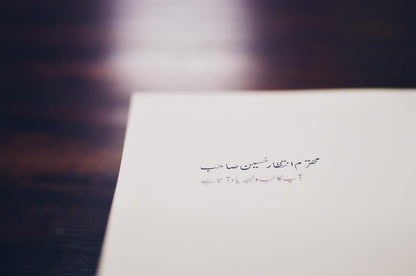 محترم انتظار حسین صاحب
آپ کا لب و لہجہ یاد آتا ہے